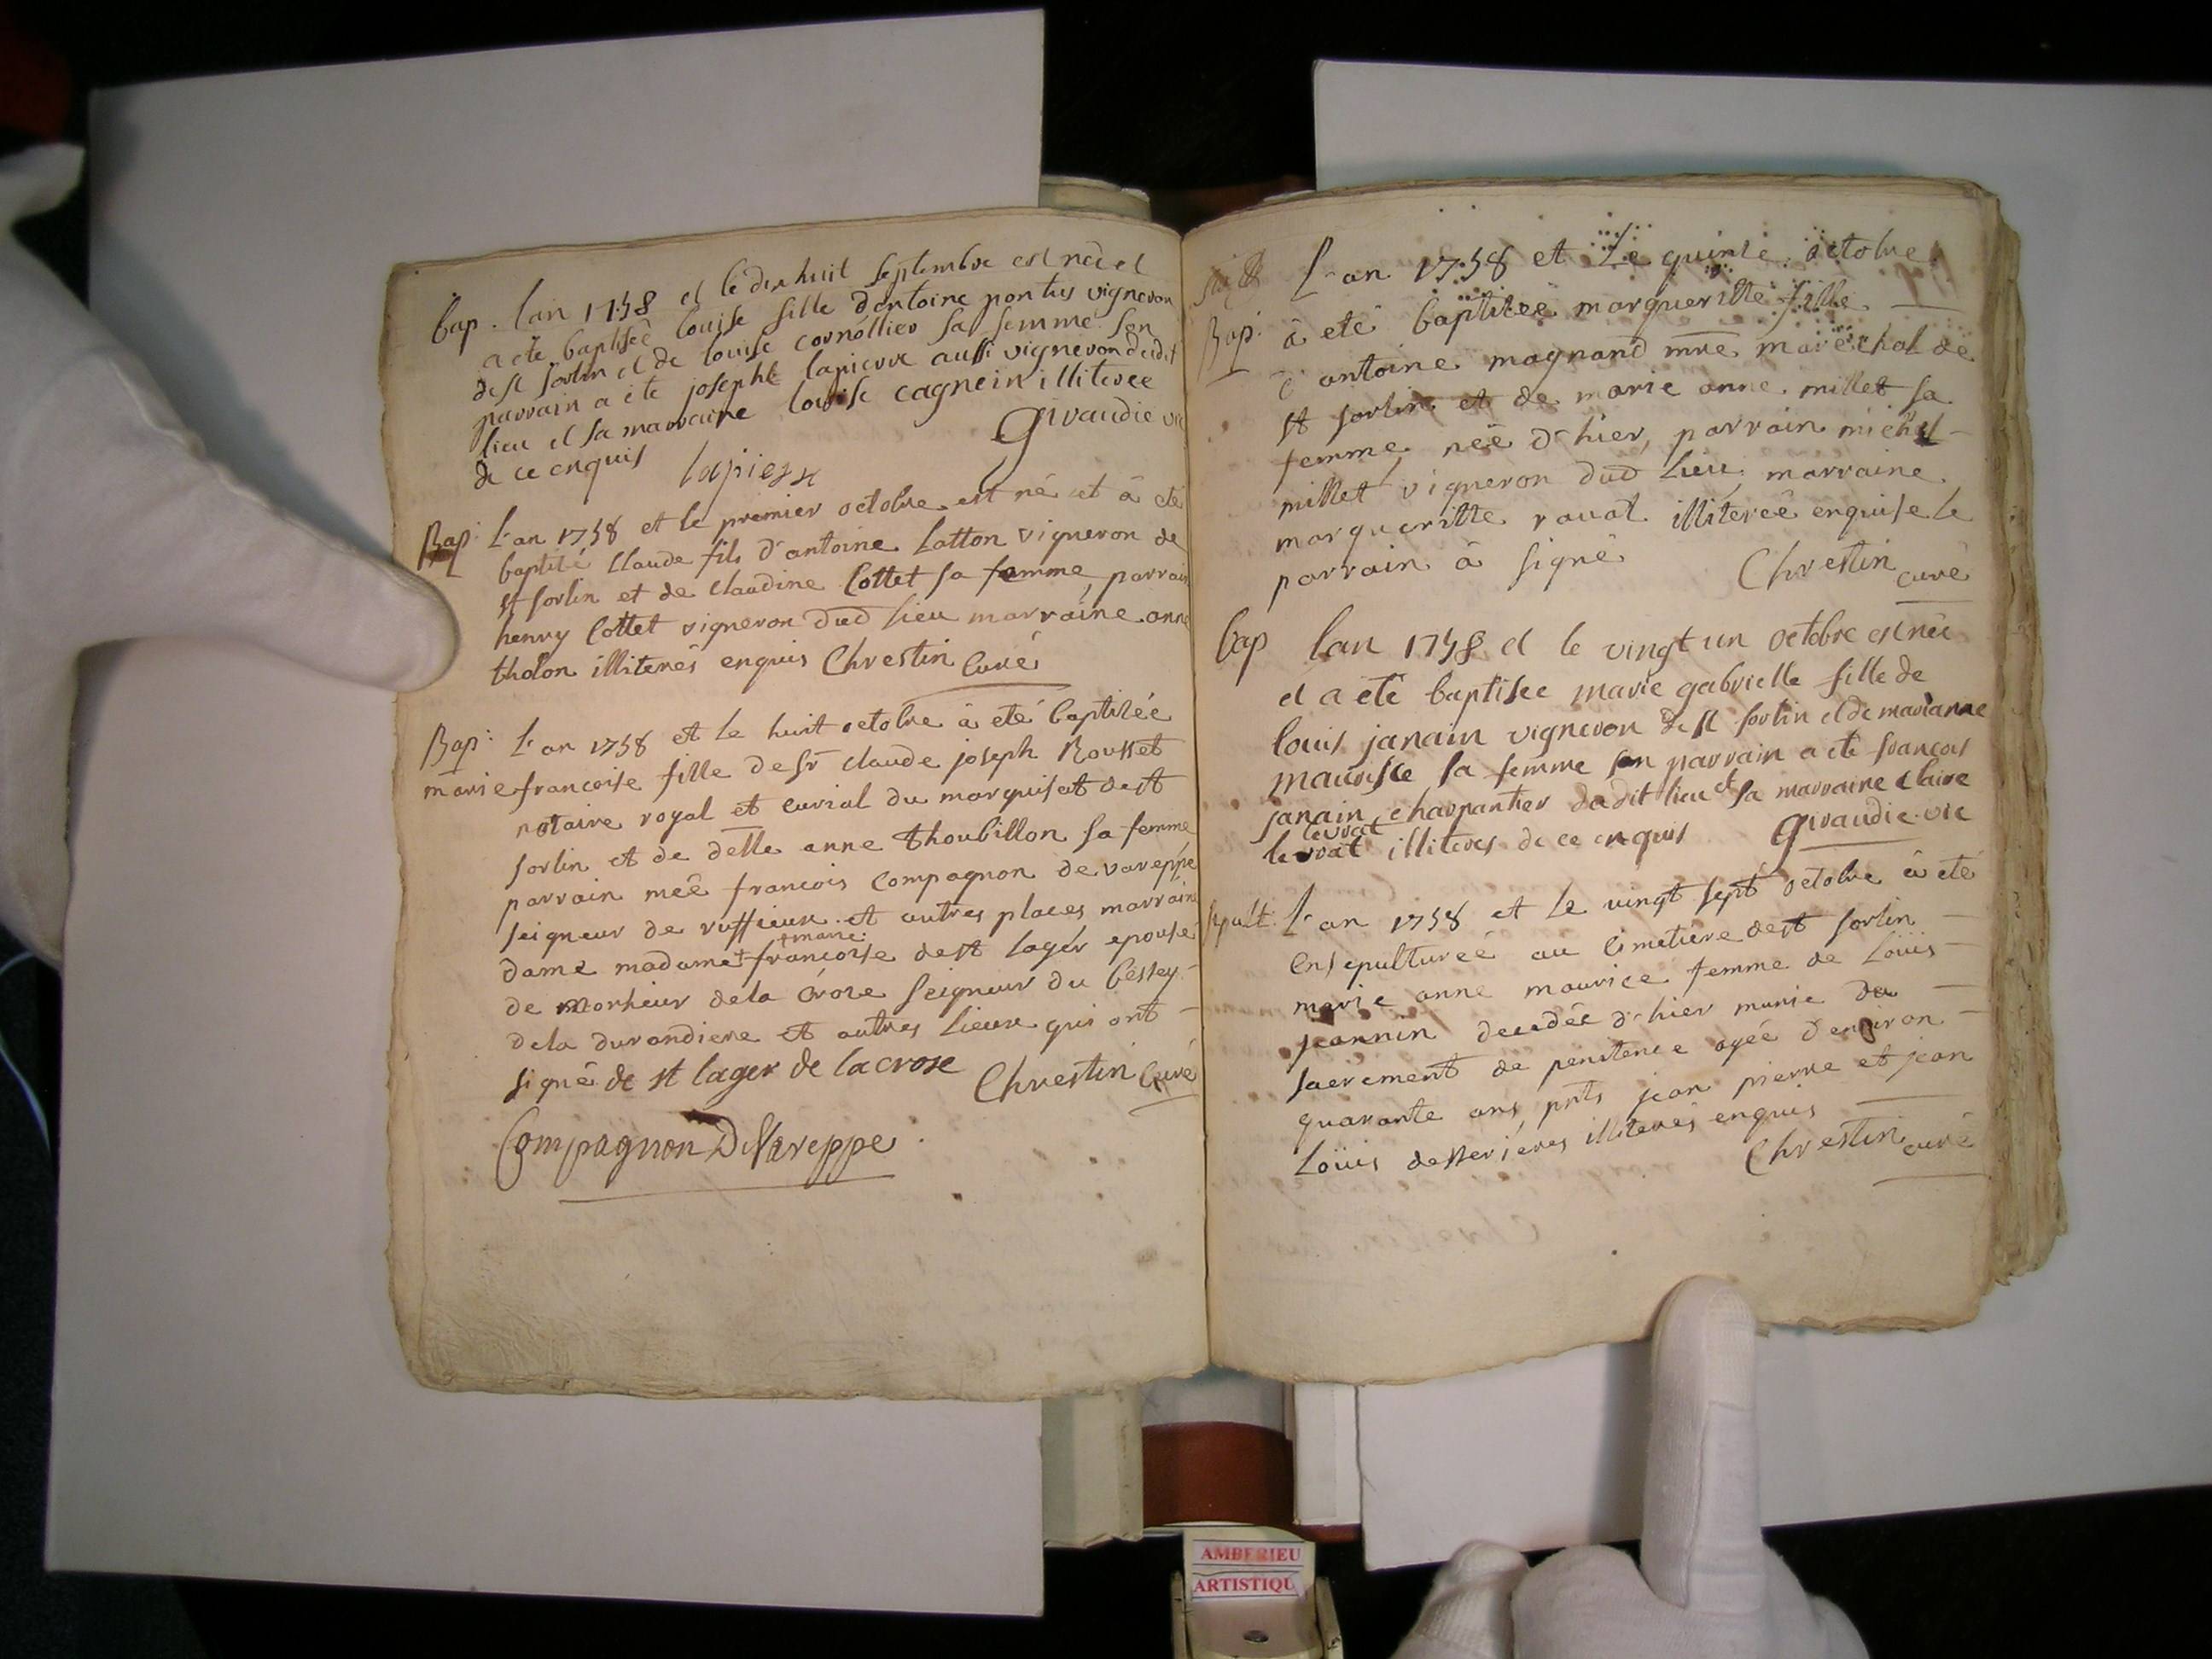 bap. lan 1758 et le dix huit septembre est née et
a ete baptisée louise fille dantoine pontus vigneron
de st sorlin et de louise cornollier sa femme son
parrain a ete josephe lapierre aussi vigneron dudit
lieu et sa marraine louise cagnein illiteree
de ce enquis
giraudie vic
lapierre
Bap: L'an 1758 et le premier octobre est né et à eté
baptisé Claude fils d'antoine Latton vigneron de
st sorlin et de Claudine Cottet sa femme, parrain
henry Cottet vigneron dud lieu marraine anne
tholon illiterés enquis Chrestin Curé
Bap: L'an 1758 et le huit octobre à eté baptisée
marie francoise fille de sr claude joseph Rousset
notaire royal et curial du marquisat de st
sorlin et de delle anne Thoubillon sa femme
parrain mee francois Compagnon de vareppe
seigneur de ruffieux et autres places marraine
+marie
dame madame+francoise de st lager epouse
de monsieur dela Croze seigneur du bessey
dela durandiere et autres lieux qui ont
signé de st lager de lacrose Chrestin Curé
Compagnon DeVareppe
L'an 1758 et Le quinze octobre
Bap: à eté baptisée marguerite fille
d'antoine magnand mre maréchal de
st sorlin et de marie anne millet sa
femme née d'hier, parrain michel
millet vigneron dud Lieu, marraine
margueritte ravat illiterée enquise le
parrain à signé Chrestin curé
bap lan 1758 et le vingt un octobre est née
et a eté baptisee marie gabrielle fille de
louis janain vigneron de st sorlin et de marianne
maurisce sa femme son parrain a ete francois
janain charpantier dudit lieu et sa marraine claire
levrat
levrat illiteres de ce enquis giraudie vic
sepult. L'an 1758 et le vingt sept octobre à eté
ensepulturée au cimetiere de st sorlin
marie anne maurice femme de Loüis
jeannin decedée d'hier munie du
sacrement de penitence agée d'environ
quarante ans pnts jean pierre et jean
Loüis desserieres illiterés enquis
Chrestin curé
AMBERIEU
ARTISTIQU